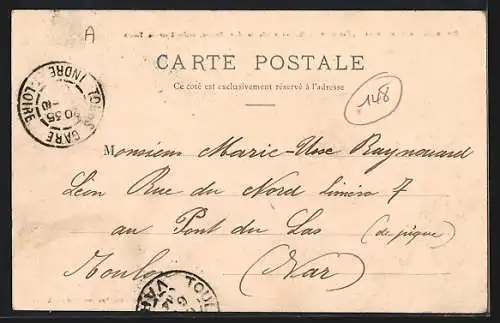 A
CARTE POSTALE
Ce côté est exclusivement réservé à l'adresse
148
TOURS GARE INDRE-ET-LOIRE
Monsieur Marie- Raynouard
Léon Rue du Nord 7
au Pont du Las
Toulon (Var)
TOUL
VAR